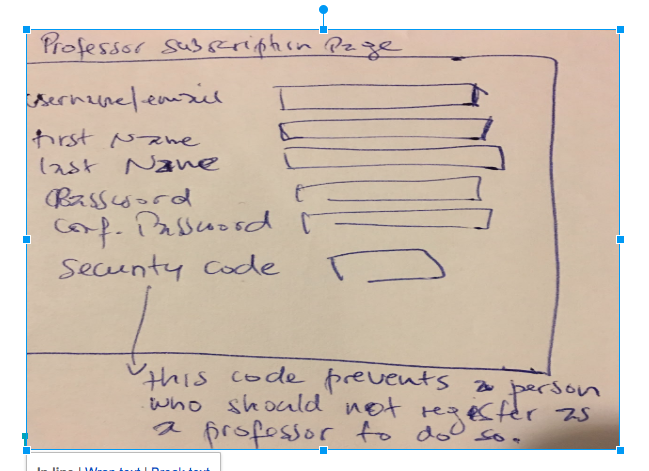 Professor subscription Page
username/email
first Name
last Name
Password
conf. Password
Security code
this code prevents a person
who should not register as
a professor to do so.
In line | Wrap text | Break text